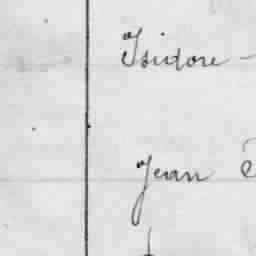 Isidore -
Jean